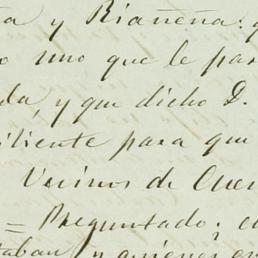 ta y Riañena: q
o uno que le par
da, y que dicho D.
iliente para que
Vecinos de Cuer
= Preguntado; co
taban y quienes er